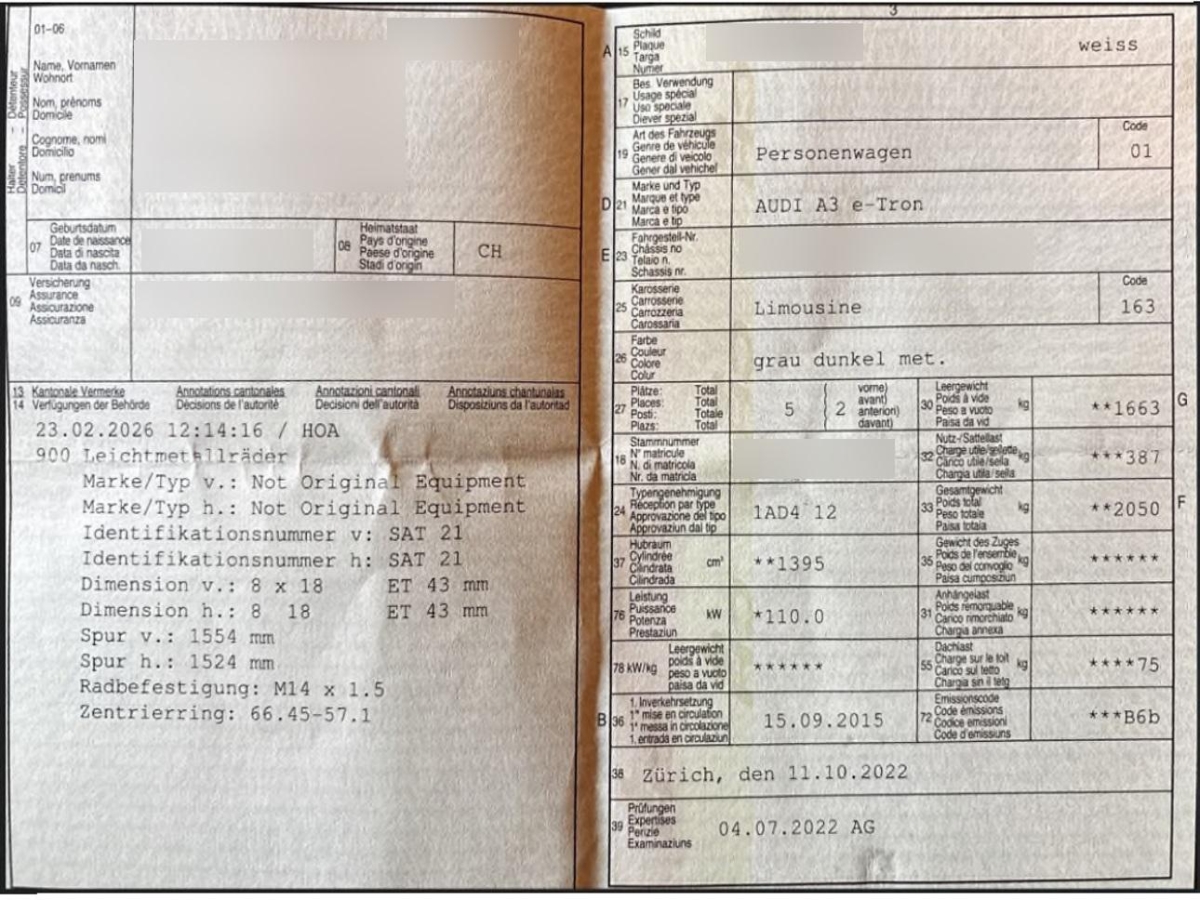 01-06
Halter - Détenteur
Detentore - Possessur
Name, Vornamen
Wohnort
Nom, prénoms
Domicile
Cognome, nomi
Domicilio
Num, prenums
Domicil
07
Geburtsdatum
Date de naissance
Data di nascita
Data da nasch.
08
Heimatstaat
Pays d'origine
Paese d'origine
Stadi d'origin
CH
09
Versicherung
Assurance
Assicurazione
Assicuranza
13 Kantonale Vermerke Annotations cantonales Annotazioni cantonali Annotaziuns chantunalas
14 Verfügungen der Behörde Décisions de l'autorité Decisioni dell'autorità Disposiziuns da l'autoritad
23.02.2026 12:14:16 / HOA
900 Leichtmetallräder
Marke/Typ v.: Not Original Equipment
Marke/Typ h.: Not Original Equipment
Identifikationsnummer v: SAT 21
Identifikationsnummer h: SAT 21
Dimension v.: 8 x 18 ET 43 mm
Dimension h.: 8 18 ET 43 mm
Spur v.: 1554 mm
Spur h.: 1524 mm
Radbefestigung: M14 x 1.5
Zentrierring: 66.45-57.1
3
A 15
Schild
Plaque
Targa
Numer
weiss
17
Bes. Verwendung
Usage spécial
Uso speciale
Diever spezial
19
Art des Fahrzeugs
Genre de véhicule
Genere di veicolo
Gener dal vehichel
Personenwagen
Code
01
D 21
Marke und Typ
Marque et type
Marca e tipo
Marca e tip
AUDI A3 e-Tron
E 23
Fahrgestell-Nr.
Châssis no
Telaio n.
Schassis nr.
25
Karosserie
Carrosserie
Carrozzeria
Carossaria
Limousine
Code
163
26
Farbe
Couleur
Colore
Colur
grau dunkel met.
27
Plätze: Total
Places: Total
Posti: Totale
Plazs: Total
5 ( 2
vorne)
avant)
anteriori)
davant)
30
Leergewicht
Poids à vide
Peso a vuoto
Paisa da vid
kg
**1663
G
18
Stammnummer
N° matricule
N. di matricola
Nr. da matricla
32
Nutz-/Sattellast
Charge utile/sellette
Carico utile/sella
Chargia utila/sella
kg
***387
24
Typengenehmigung
Réception par type
Approvazione del tipo
Approvaziun dal tip
1AD4 12
33
Gesamtgewicht
Poids total
Peso totale
Paisa totala
kg
**2050
F
37
Hubraum
Cylindrée
Cilindrata
Cilindrada
cm³
**1395
35
Gewicht des Zuges
Poids de l'ensemble
Peso del convoglio
Paisa cumposiziun
kg
******
76
Leistung
Puissance
Potenza
Prestaziun
kW
*110.0
31
Anhängelast
Poids remorquable
Carico rimorchiato
Chargia annexa
kg
******
78 kW/kg
Leergewicht
poids à vide
peso a vuoto
paisa da vid
******
55
Dachlast
Charge sur le toit
Carico sul tetto
Chargia sin il tetg
kg
****75
B 36
1. Inverkehrsetzung
1re mise en circulation
1a messa in circolazione
1. entrada en circulaziun
15.09.2015
72
Emissionscode
Code émissions
Codice emissioni
Code d'emissiuns
***B6b
38
Zürich, den 11.10.2022
39
Prüfungen
Expertises
Perizie
Examinaziuns
04.07.2022 AG